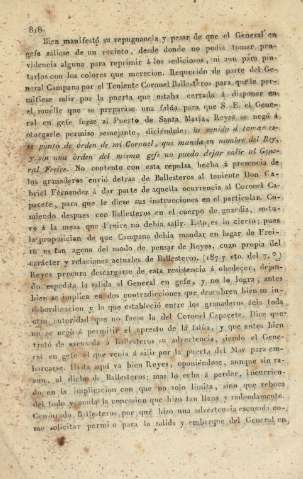 818.
Bien manifestó su repugnancia y pesar de que el General en
gefe saliese de un recinto, desde donde no podia tomar pro-
videncia alguna para reprimir á los sediciosos, ni aun para pin-
tarlos con los colores que merecian. Requerido de parte del Ge-
neral Campana por el Teniente Coronel Ballesteros para que le per-
mitiese salir por la puerta que estaba cerrada á disponer en
el muelle que se preparase una falúa para que S. E. el Gene-
ral en gefe fuese al Puerto de Santa María, Reyes se negó á
otorgarle permiso semejante, diciéndole: he venido á tomar es-
te punto de órden de mi Coronel, que manda en nombre del Rey,
y sin una órden del mismo gefe no puedo dejar salir al Gene-
ral Freire. No contento con esta repulsa hecha á presencia de
los granaderos envió detras de Ballesteros al teniente Don Ga-
briel Fernandez á dar parte de aquella ocurrencia al Coronel Ca-
pacete, para que le diese sus instrucciones en el particular. Co-
miendo despues con Ballesteros en el cuerpo de guardia, sostu-
vo á la mesa que Freire no debia salir. Esto es lo cierto; pues
la proposicion de que Campana debia mandar en lugar de Frei-
re es tan agena del modo de pensar de Reyes, cuan propia del
carácter y relaciones actuales de Ballesteros. (187 y
Reyes procura descargarse de esta resistencia á obedecer, dejan-
do expedita la salida al General en gefe, y no lo logra; antes
bien se implica en dos contradicciones que descubren bien su in-
subordinacion y la que estableció entre los granaderos
otra autoridad que no fuese la del Coronel Capacete. Dice que
no se negó á permitir el apresto de la falúa, y que antes bien
trató de escusada á Ballesteros su advertencia, siendo el Gene-
ral en gefe el que venia á salir por la puerta del Mar para em-
barcarse. Hasta aquí va bien Reyes, oponiéndose, aunque sin ra-
zon, al dicho de Ballesteros; mas lo echa á perder, incurrien-
do en la implicacion que no solo limita, sino que rehoca
del todo y anula la concesion que hizo tan llana y redondamente.
Ballesteros por qué hizo una advertencia escusada co-
mo solicitar permiso para la salida y embarque del General en